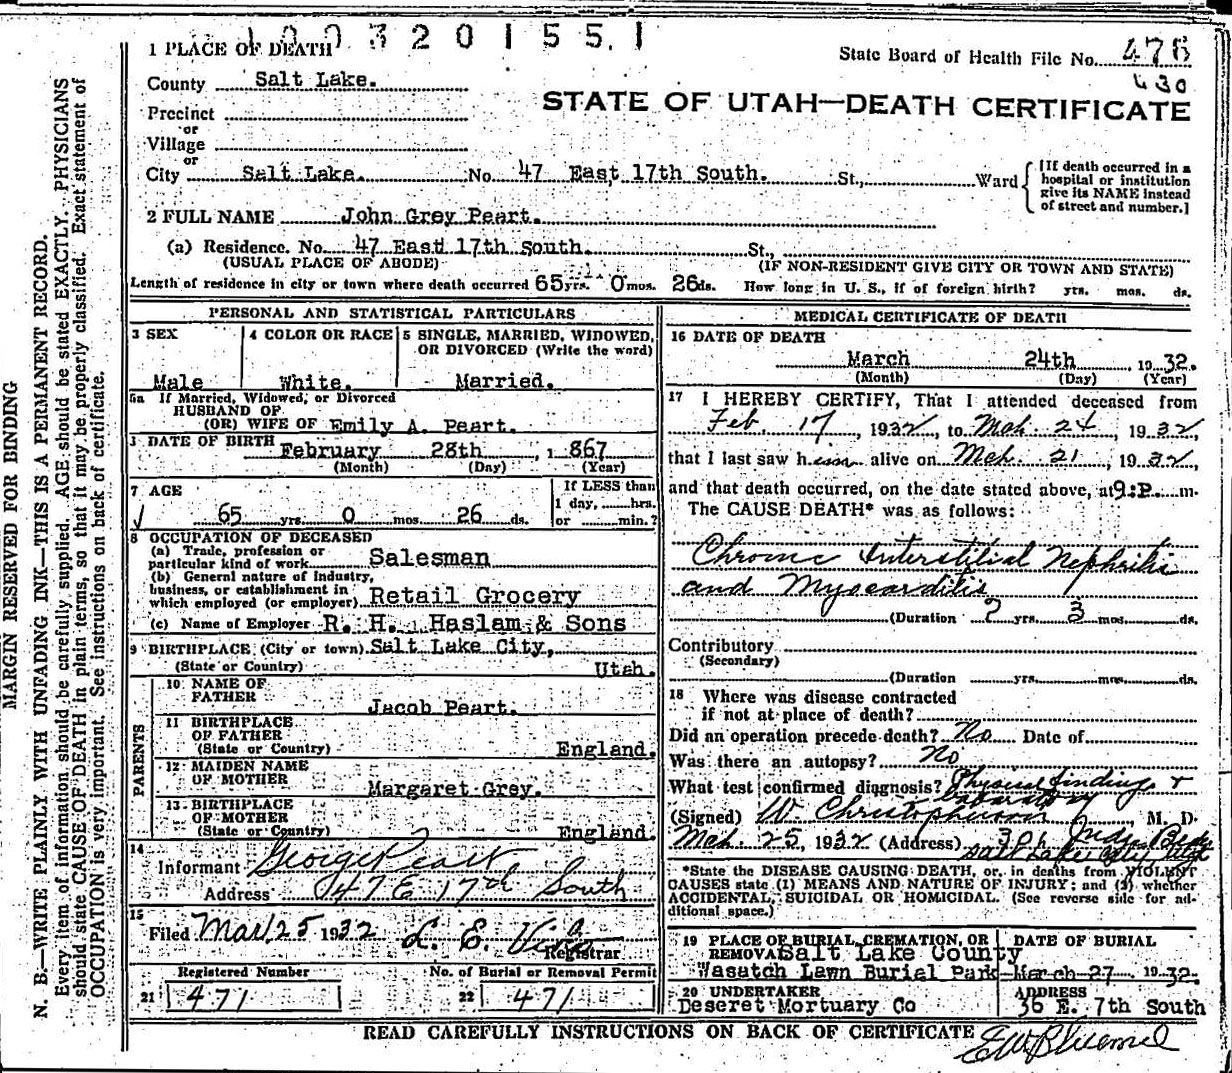 1003201551
1 PLACE OF DEATH
State Board of Health File No. 476
430
County Salt Lake.
STATE OF UTAH—DEATH CERTIFICATE
Precinct
or
Village
or
City Salt Lake. No. 47 East 17th South. St., Ward
[If death occurred in a hospital or institution give its NAME instead of street and number.]
2 FULL NAME John Grey Peart.
(a) Residence. No. 47 East 17th South. St.,
(USUAL PLACE OF ABODE) (IF NON-RESIDENT GIVE CITY OR TOWN AND STATE)
Length of residence in city or town where death occurred 65 yrs. 0 mos. 26 ds. How long in U. S., if of foreign birth? yrs. mos. ds.
PERSONAL AND STATISTICAL PARTICULARS
3 SEX
Male
4 COLOR OR RACE
White.
5 SINGLE, MARRIED, WIDOWED,
OR DIVORCED (Write the word)
Married.
5a If Married, Widowed, or Divorced
HUSBAND OF
(OR) WIFE OF Emily A. Peart.
DATE OF BIRTH February 28th, 1867
(Month) (Day) (Year)
7 AGE
65 yrs. 0 mos. 26 ds.
If LESS than
1 day, hrs.
or min.?
8 OCCUPATION OF DECEASED
(a) Trade, profession or
particular kind of work Salesman
(b) General nature of Industry,
business, or establishment in
which employed (or employer) Retail Grocery
(c) Name of Employer R. H. Haslam & Sons
9 BIRTHPLACE (City or town) Salt Lake City,
(State or Country) Utah.
PARENTS
10 NAME OF
FATHER
Jacob Peart.
11 BIRTHPLACE
OF FATHER
(State or Country) England.
12 MAIDEN NAME
OF MOTHER
Margaret Grey.
13 BIRTHPLACE
OF MOTHER
(State or Country) England.
14
Informant George Peart
Address 47 E 17th South
15
Filed Mar. 25 1932 L. E.
Registrar
Registered Number
21 471
No. of Burial or Removal Permit
22 471
MEDICAL CERTIFICATE OF DEATH
16 DATE OF DEATH
March 24th, 1932.
(Month) (Day) (Year)
17 I HEREBY CERTIFY, That I attended deceased from
Feb. 17, 1932, to Mch. 24, 1932,
that I last saw him alive on Mch. 21, 1932,
and that death occurred, on the date stated above, at 9:P. m.
The CAUSE DEATH* was as follows:
Chronic Interstitial Nephritis
and Myocarditis
(Duration 2 yrs. 3 mos. ds.
Contributory
(Secondary)
(Duration yrs. mos. ds.
18 Where was disease contracted
if not at place of death?
Did an operation precede death? No Date of
Was there an autopsy? No
What test confirmed diagnosis? Physical findings +
laboratory
(Signed) W Christopherson, M. D.
Mch. 25, 1932 (Address) 304 Judge Bldg
Salt Lake City, Utah
*State the DISEASE CAUSING DEATH, or, in deaths from VIOLENT
CAUSES state (1) MEANS AND NATURE OF INJURY; and (2) whether
ACCIDENTAL, SUICIDAL OR HOMICIDAL. (See reverse side for ad-
ditional space.)
19 PLACE OF BURIAL, CREMATION, OR
REMOVAL Salt Lake County
Wasatch Lawn Burial Park
DATE OF BURIAL
March 27 1932.
20 UNDERTAKER
Deseret Mortuary Co
ADDRESS
36 E. 7th South
READ CAREFULLY INSTRUCTIONS ON BACK OF CERTIFICATE
MARGIN RESERVED FOR BINDING
N. B.—WRITE PLAINLY WITH UNFADING INK—THIS IS A PERMANENT RECORD.
Every item of information should be carefully supplied. AGE should be stated EXACTLY. PHYSICIANS
should state CAUSE OF DEATH in plain terms, so that it may be properly classified. Exact statement of
OCCUPATION is very important. See instructions on back of certificate.